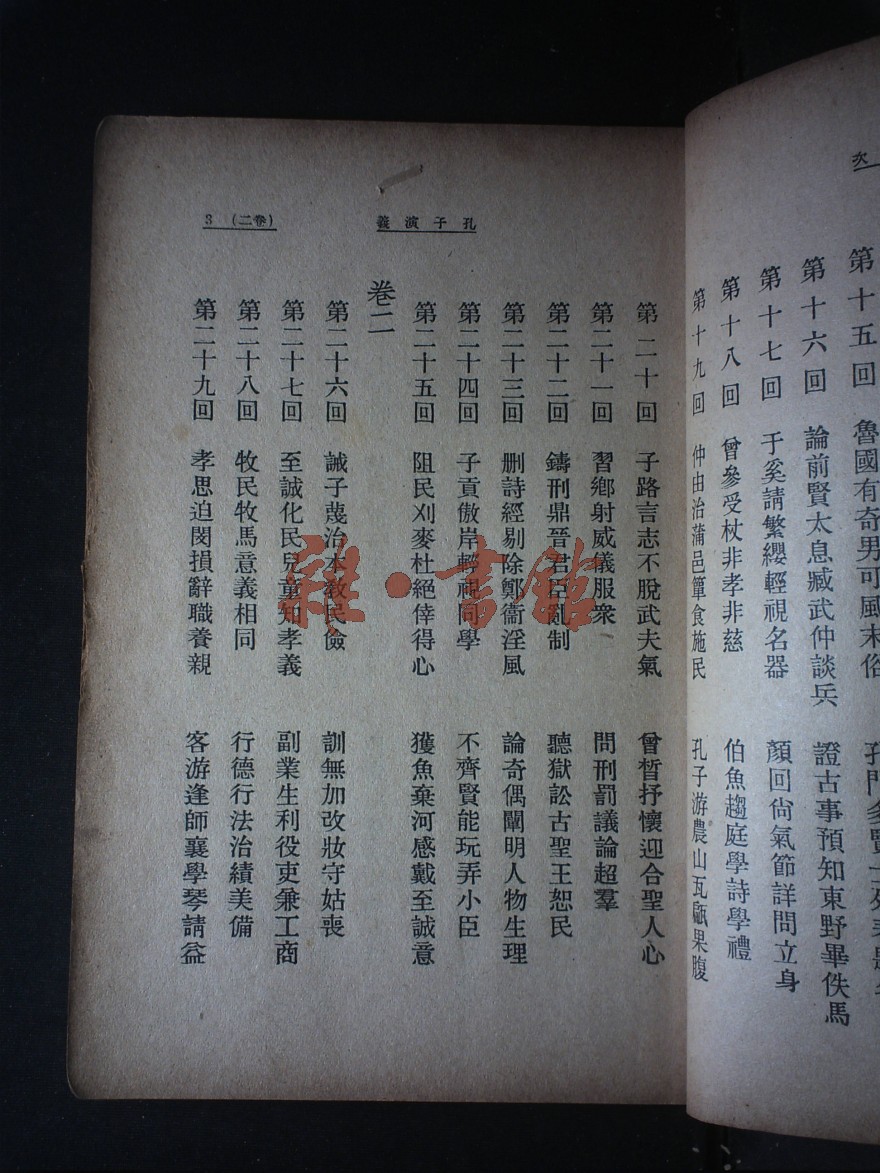 次
第十五回 魯國有奇男可風末俗 孔門多賢士
第十六回 論前賢太息臧武仲談兵 證古事預知東野畢佚馬
第十七回 于奚請繁纓輕視名器 顏回尙氣節詳問立身
第十八回 曾參受杖非孝非慈 伯魚趨庭學詩學禮
第十九回 仲由治蒲邑簞食施民 孔子游農山瓦甌果腹
孔子演義
(卷二) 3
第二十回 子路言志不脫武夫氣 曾晳抒懷迎合聖人心
第二十一回 習鄉射威儀服衆 問刑罰議論超羣
第二十二回 鑄刑鼎晉君臣亂制 聽獄訟古聖王恕民
第二十三回 删詩經剔除鄭衞淫風 論奇偶闡明人物生理
第二十四回 子貢傲岸輕視同學 不齊賢能玩弄小臣
第二十五回 阻民刈麥杜絕倖得心 獲魚棄河感戴至誠意
卷二
第二十六回 誡子蔑治本敎民儉 訓無加改妝守姑喪
第二十七回 至誠化民兒童知孝義 副業生利役吏兼工商
第二十八回 牧民牧馬意義相同 行德行法治績美備
第二十九回 孝思迫閔損辭職養親 客游逢師襄學琴請益
雜·書館